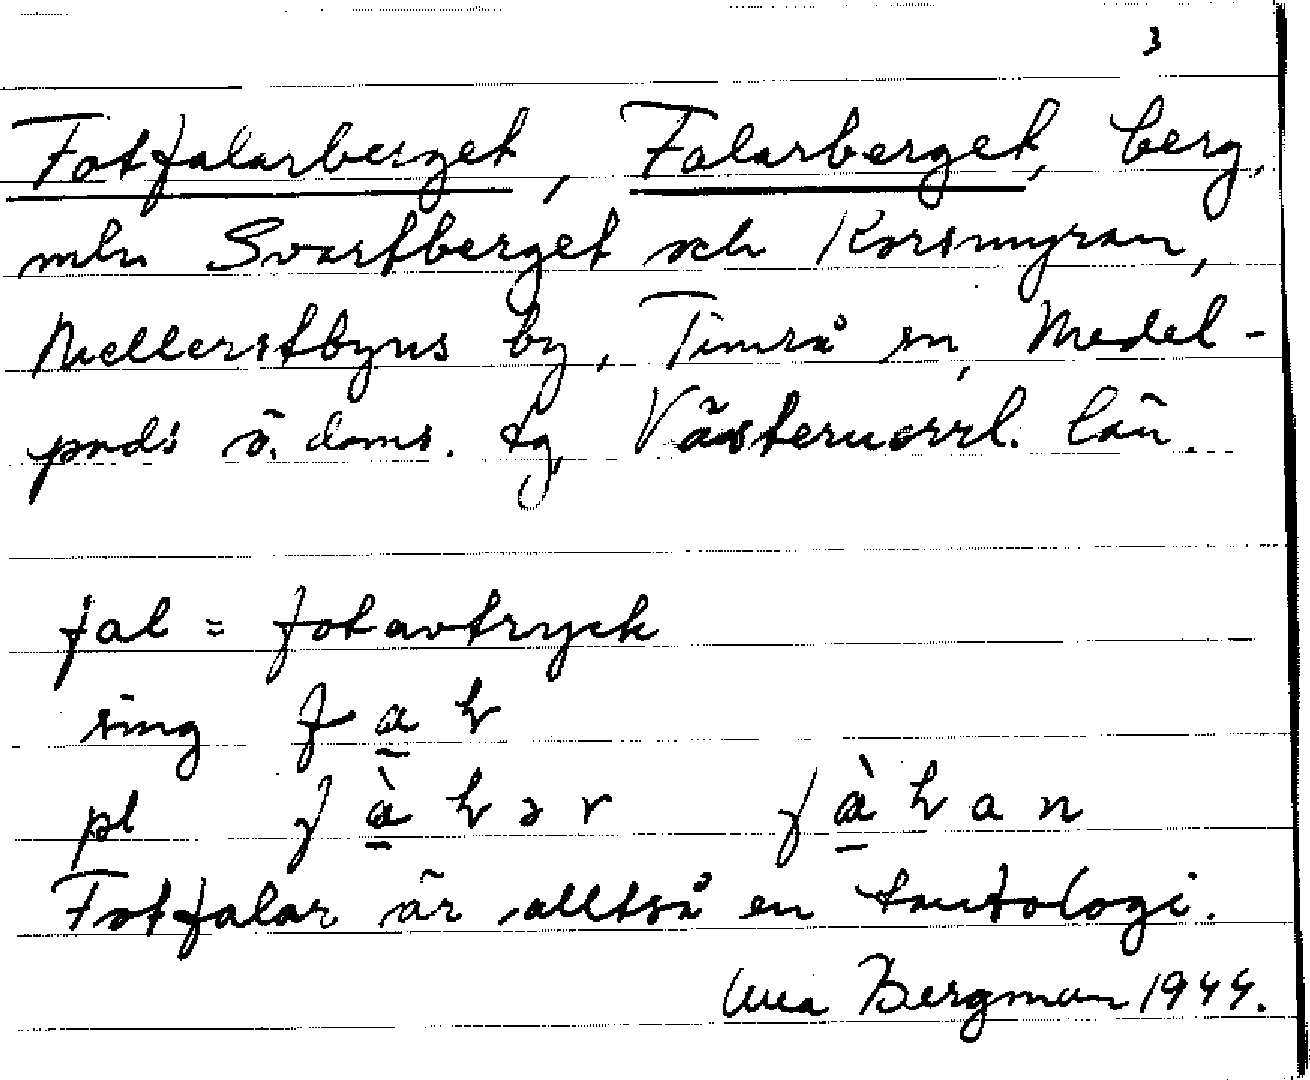 3
Fotfalarberget, Falarberget, berg,
mln Svartberget och Korsmyran,
Mellerstbyns by, Timrå sn, Medel-
pads ö. doms. tg, Västernorrl. län.
fal = fotavtryck
sing f a
pl
Fotfalar är alltså en tautologi.
Bergman 1944.